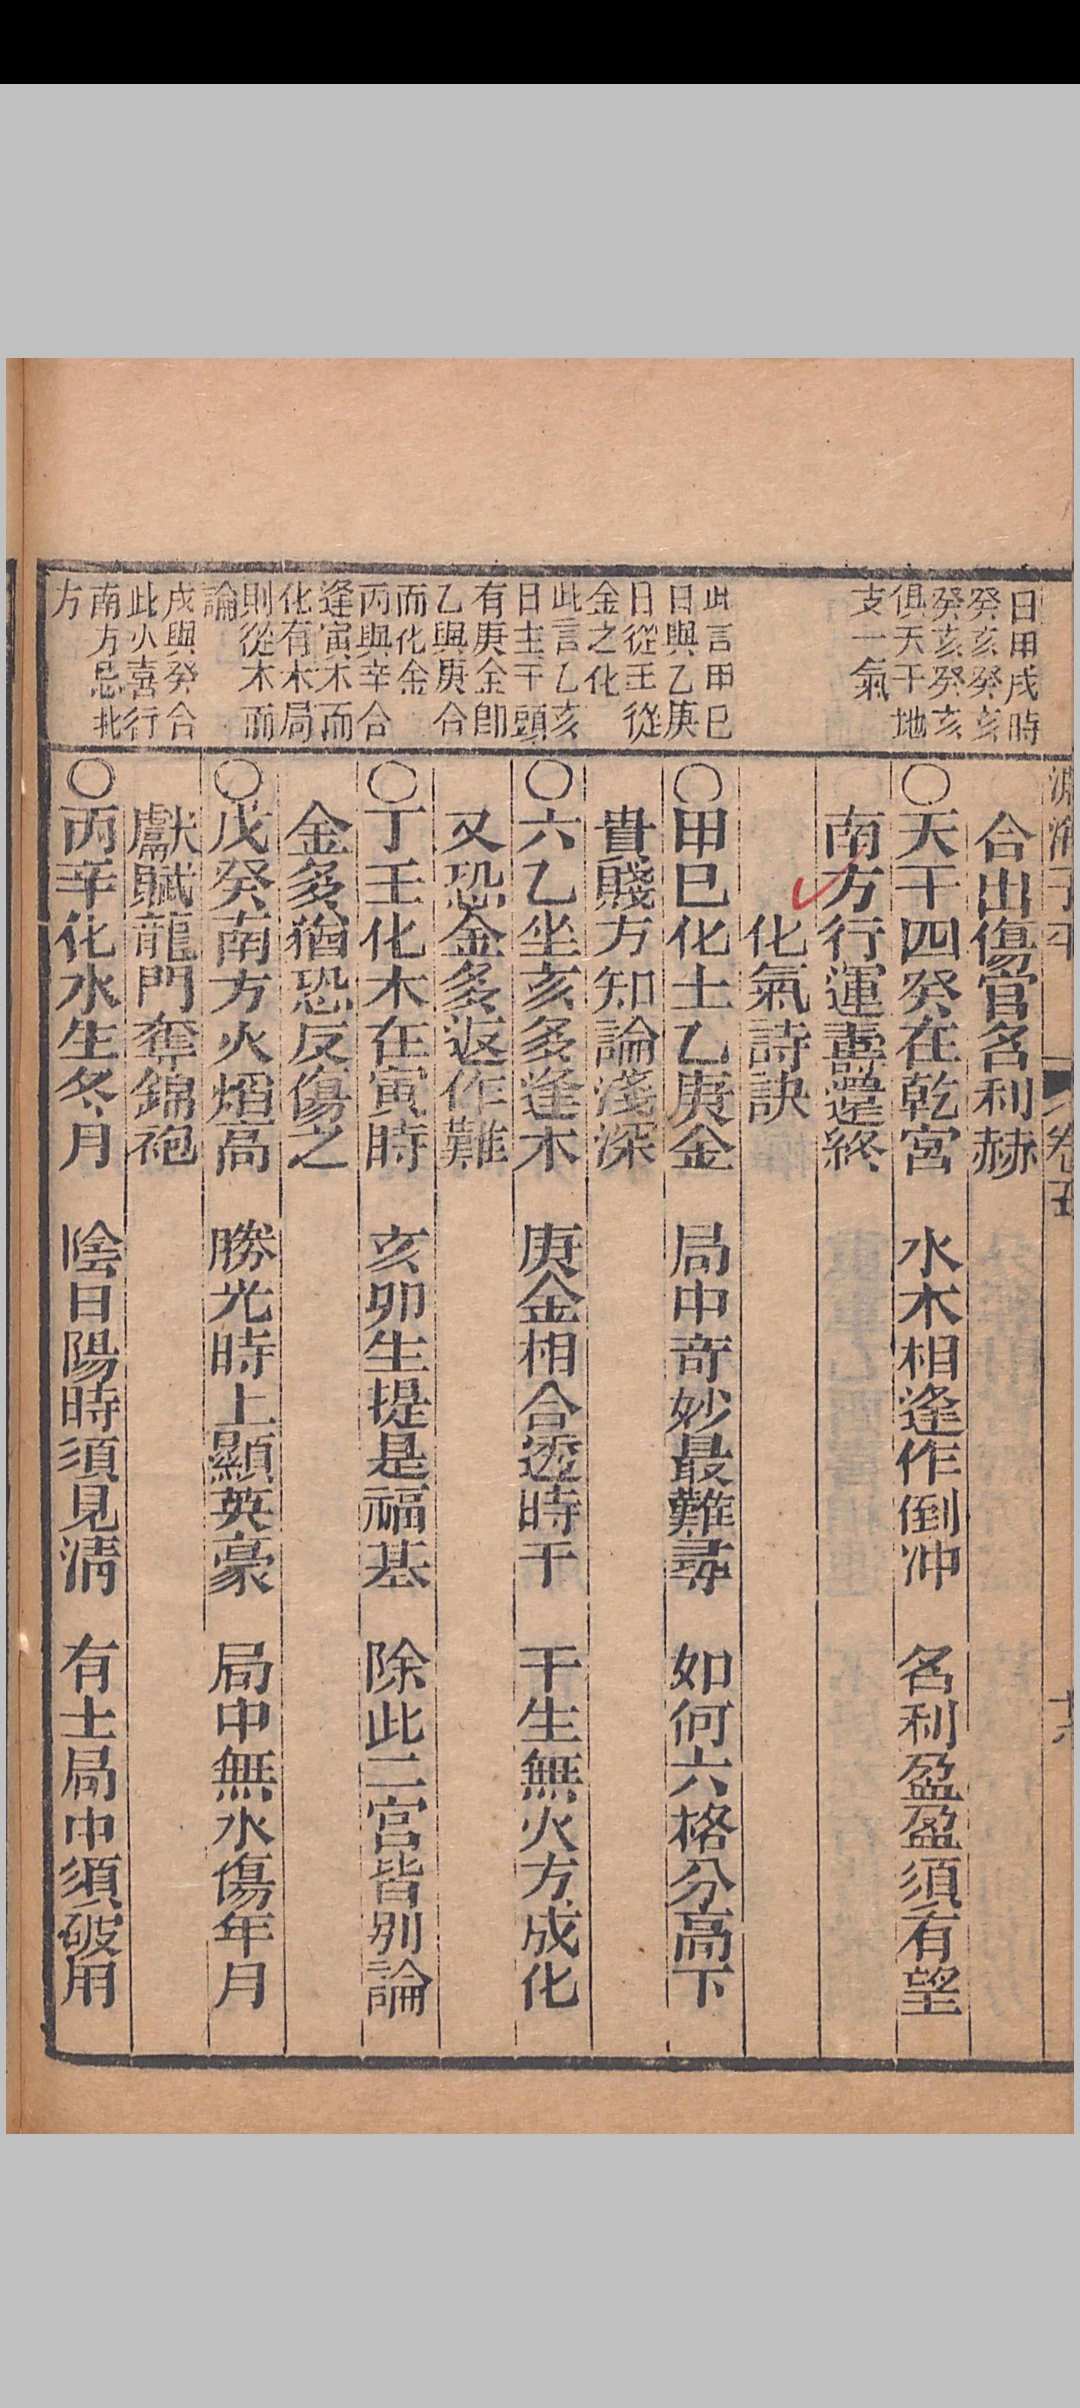 日甲戌時
癸亥癸亥
癸亥癸亥
俱天干地
支一氣
此言甲巳
日與乙庚
日從王從
金之化
此言乙亥
日主干頭
有庚金卽
乙與庚合
而化金
丙與辛合
逢寅木而
化有木局
則從木而
論
戌與癸合
此火喜行
南方忌北
方
淵海子平
卷五
合出傷官名利赫
〇天干四癸在乾宮 水木相逢作倒冲 名利盈盈須有望
南方行運壽還終
化氣詩訣
〇甲巳化土乙庚金 局中奇妙最難尋 如何六格分高下
貴賤方知論淺深
〇六乙坐亥多逢木 庚金相合透時干 干生無火方成化
又恐金多返作難
〇丁壬化木在寅時 亥卯生提是福基 除此二宮皆別論
金多猶恐反傷之
〇戊癸南方火熖高 勝光時上顯英豪 局中無水傷年月
獻賦龍門奪錦袍
〇丙辛化水生冬月 陰日陽時須見淸 有土局中須破用